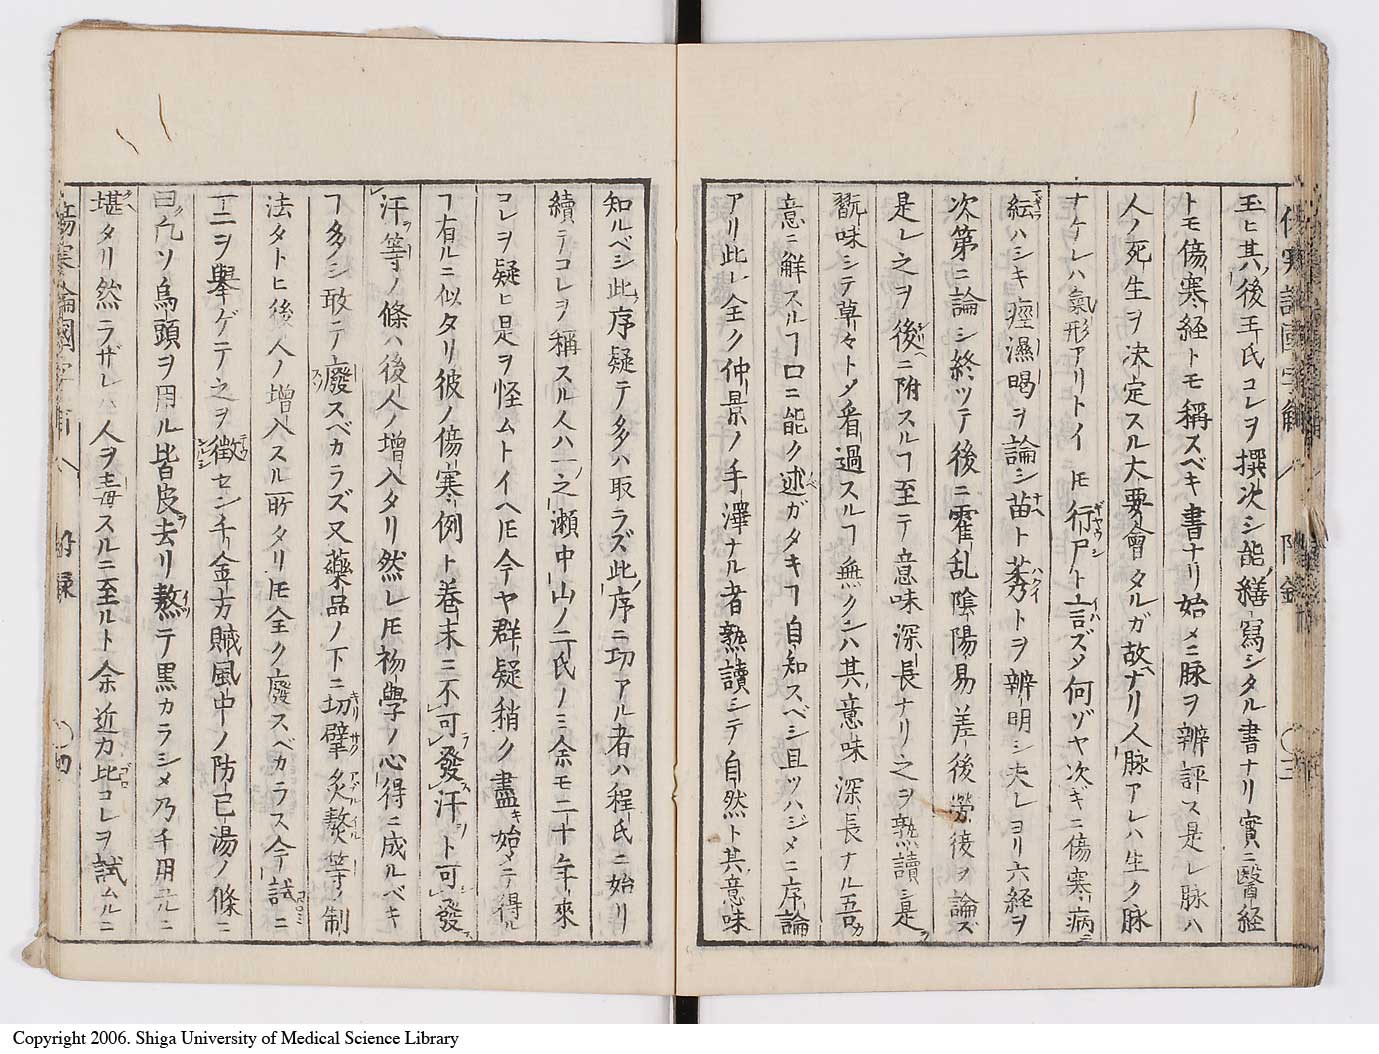 玉ヒ其後王氏コレヲ撰次シ能繕寫シタル書ナリ實ニ醫経
トモ傷寒経トモ稱スベキ書ナリ始メニ脉ヲ辨評ス是レ脉ハ
人ノ死生ヲ决定スル大要會タルガ故ナリ人脉アレハ生ク脉
ナケレハ氣形アリトイヘトモ行尸ト言ズメ何ゾヤ次キニ傷寒病ニ
紜ハシキ痙濕暍ヲ論シ苗ト莠トヲ辨明シ夫レヨリ六経ヲ
次第ニ論シ終ツテ後ニ霍乱陰陽易差後労後ヲ論ズ
是レ之ヲ後ニ附スルヿ至テ意味深長ナリ之ヲ熟讀シ是ヲ
翫味シテ草々トメ看過スルヿ無クンハ其意味深長ナル吾カ
意ニ解スルヿ口ニ能ク述ベガタキヿ自知スベシ且ツハジメニ序論
アリ此レ全ク仲景ノ手澤ナル者熟讀シテ自然ト其意味
知ルベシ此序疑テ多ハ取ラズ此序ニ功アル者ハ程氏ニ始リ
續テコレヲ稱スル人ハ一之瀬中山ノ二氏ノミ余モ二十年來
コレヲ疑ヒ是ヲ怪ムトイヘトモ今ヤ群疑稍ク盡キ始メテ得ル
ヿ有ルニ似タリ彼ノ傷寒例ト巻末ニ不可發汗ト可發
汗等ノ條ハ後人ノ増入タリ然レトモ初學ノ心得ニ成ルベキ
ヿ多シ敢テ廢スベカラズ又藥品ノ下ニ切擘炙熬等ノ制
法タトヒ後人ノ増入スル所タリトモ全ク廢スベカラス今試ニ
一二ヲ擧ゲテ之ヲ徴セン千金方賊風中ノ防已湯ノ條ニ
曰凡ソ烏頭ヲ用ル皆皮去リ熬テ黒カラシメ乃チ用ルニ
堪タリ然ラザレハ人ヲ毒スルニ至ルト余近カ比コレヲ試ムルニ
傷寒論國字解 八 附録 〇四